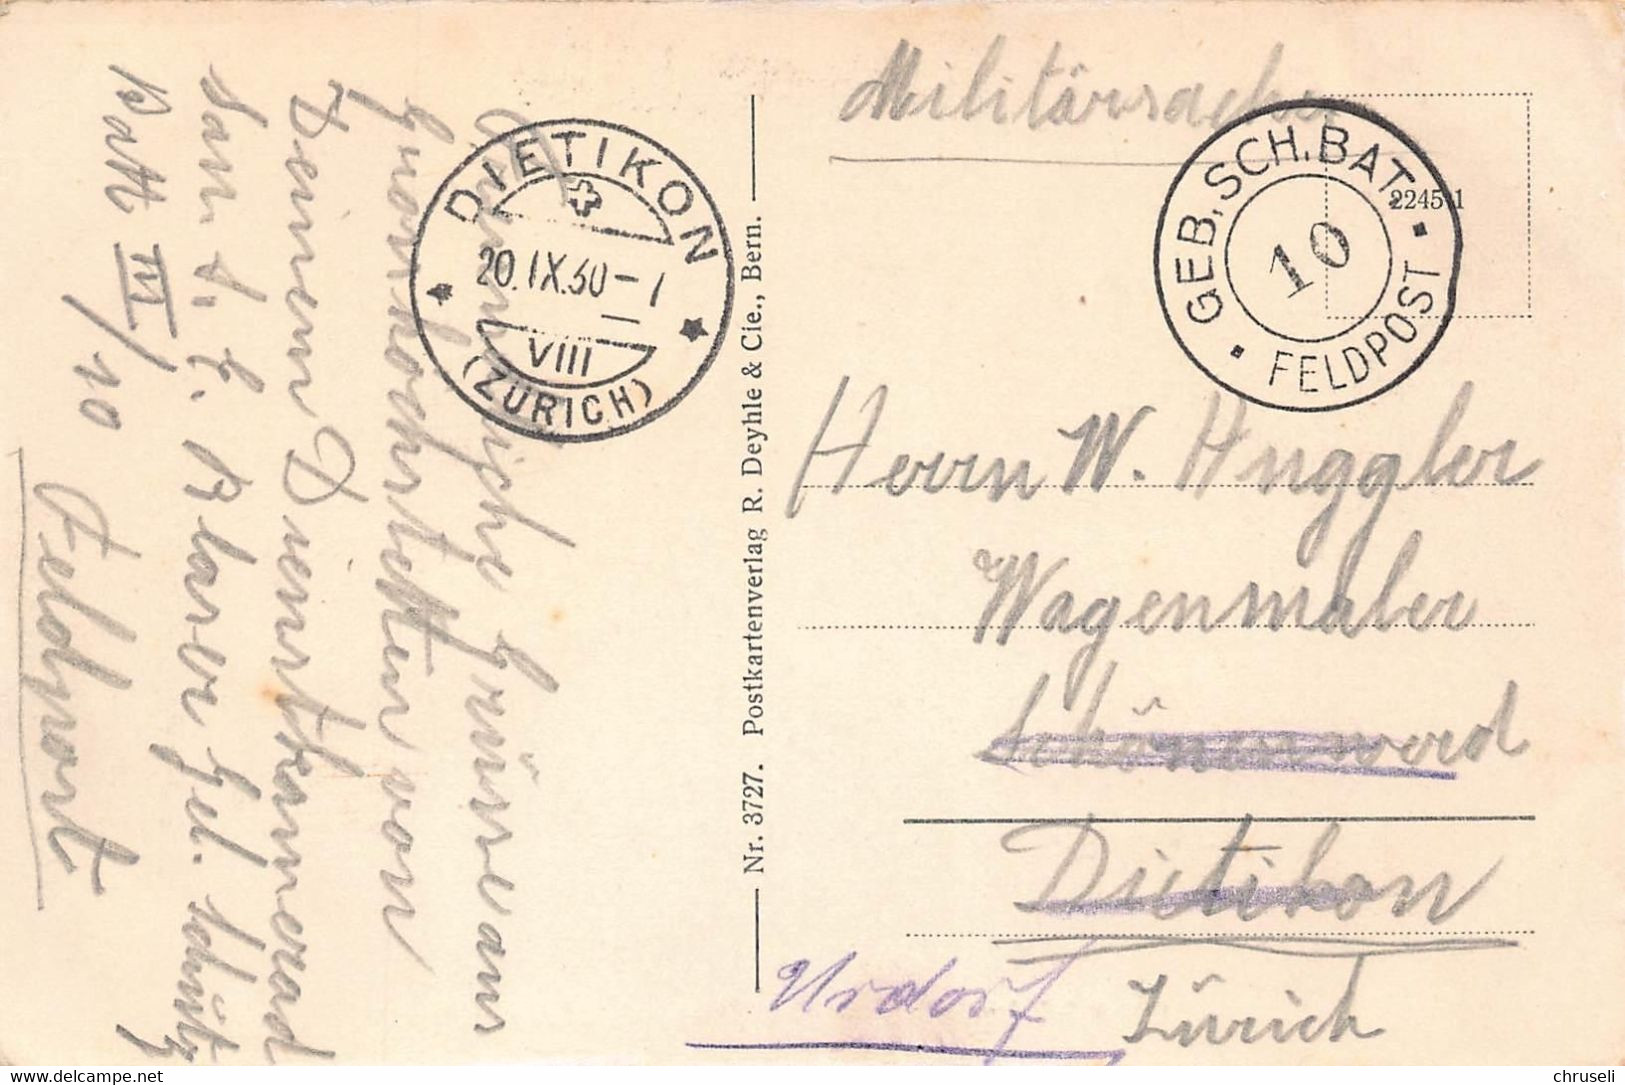 Militärsache
GEB. SCH. BAT.
10
FELDPOST
22451
DIETIKON
20.IX.30-1
VIII
(ZÜRICH)
Grüsse aus
von
Deinem Dienstkamerad
Geb. Schütz
Batt III/10
Feldpost
Nr. 3727. Postkartenverlag R. Deyhle & Cie., Bern.
Herrn W. Huggler
Wagenmaler
Schönenwerd
Dietikon
Urdorf Zürich
chruseli